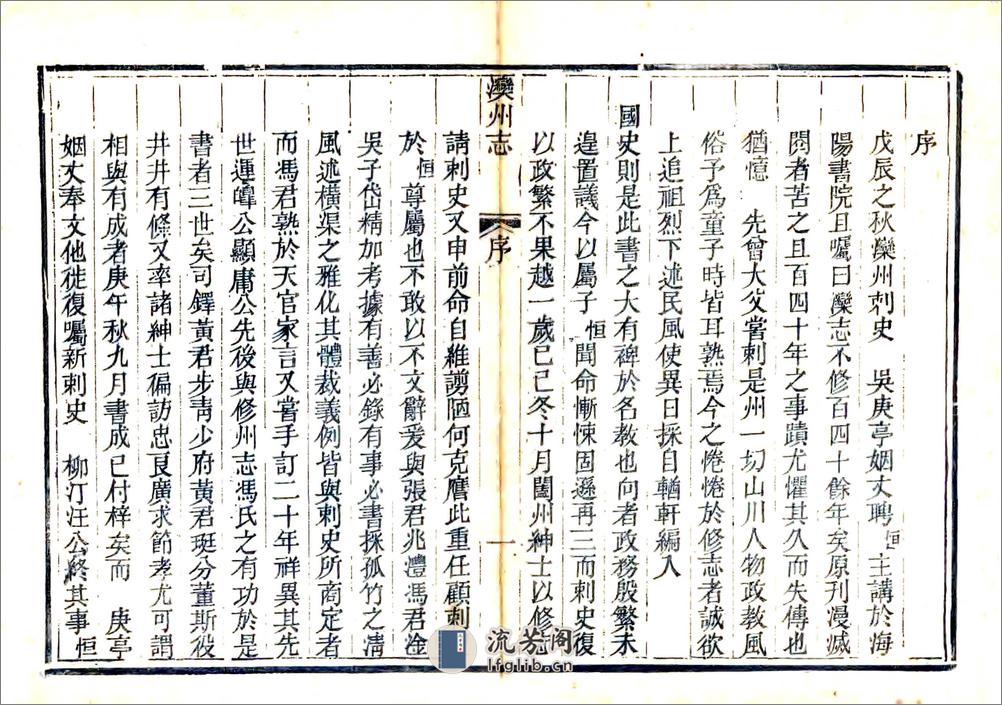 序
戊辰之秋灤州刺史　吳庚亭姻丈聘恒主講於海
陽書院且囑曰灤志不修百四十餘年矣原刊漫滅
閱者苦之且百四十年之事蹟尤懼其久而失傳也
猶憶　先曾大父嘗刺是州一切山川人物政教風
俗予爲童子時皆耳熟焉今之惓惓於修志者誠欲
上追祖烈下述民風使異日採自輶軒編入
國史則是此書之大有裨於名教也向者政務殷繁未
遑置議今以屬子恒聞命慚悚固遜再三而刺史復
以政繁不果越一歲己巳冬十月闔州紳士以修
灤州志
序
一
請刺史又申前命自維謭陋何克膺此重任顧刺
於恒尊屬也不敢以不文辭爰與張君兆澧馮君淦
吳子岱精加考據有善必錄有事必書採孤竹之淸
風述橫渠之雅化其體裁義例皆與刺史所商定者
而馮君熟於天官家言又嘗手訂二十年祥異其先
世運暐公顯庸公先後與修州志馮氏之有功於是
書者三世矣司鐸黃君步靑少府黃君珽分董斯役
井井有條又率諸紳士徧訪忠良廣求節孝尤可謂
相與有成者庚午秋九月書成已付梓矣而　庚亭
姻丈奉文他徙復囑新刺史　柳汀汪公終其事恒
流芳閣
lfglib.cn